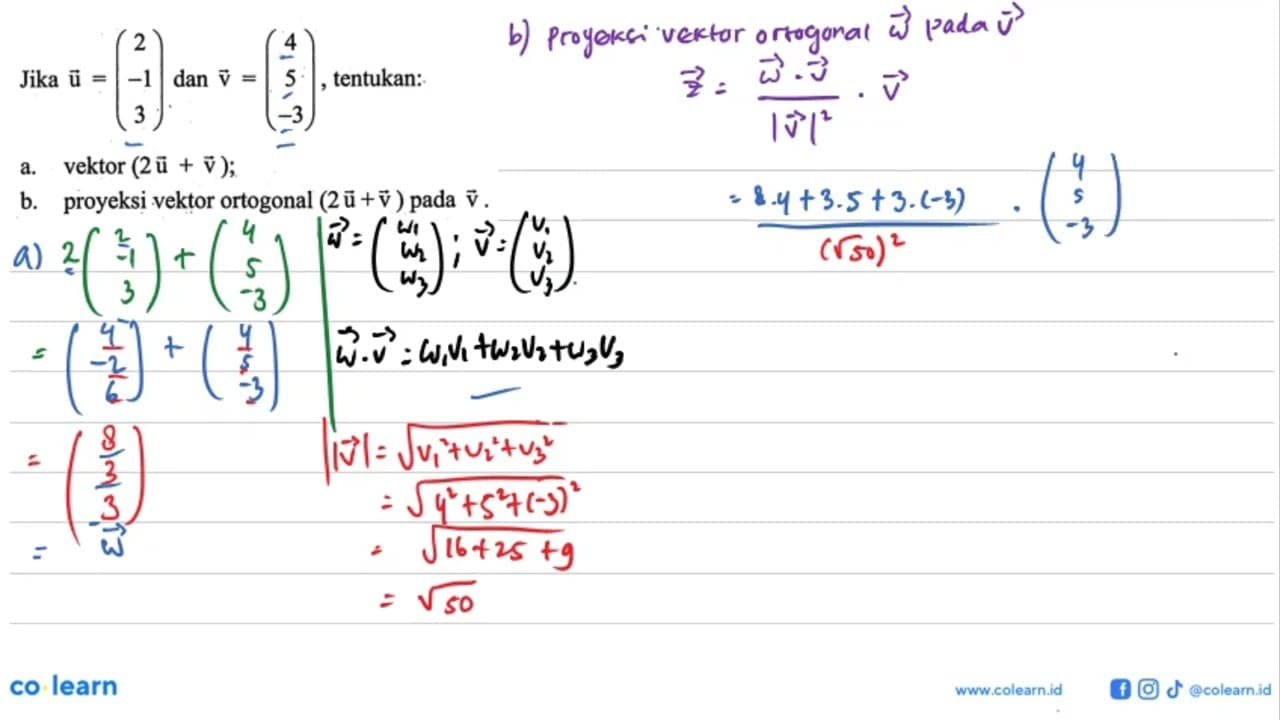 Jika u⃗ = (2 -1 3) dan v⃗ = (4 5 -3), tentukan:
a. vektor (2u⃗ + v⃗);
b. proyeksi vektor ortogonal (2u⃗+v⃗) pada v⃗.
a) 2(2 -1 3) + (4 5 -3)
= (4 -2 6) + (4 5 -3)
= (8 3 3)
= w⃗
w⃗ = (w₁ w₂ w₃) ; v⃗ = (v₁ v₂ v₃).
w⃗.v⃗ = w₁v₁+w₂v₂+w₃v₃
|v⃗| = √v₁²+v₂²+v₃²
= √4²+5²+(-3)²
= √16+25+9
= √50
b) Proyeksi vektor ortogonal w⃗ pada v⃗
z⃗ = w⃗.v⃗ / |v⃗|² . v⃗
= 8.4+3.5+3.(-3) / (√50)² . (4 5 -3)
co learn
www.colearn.id
@colearn.id